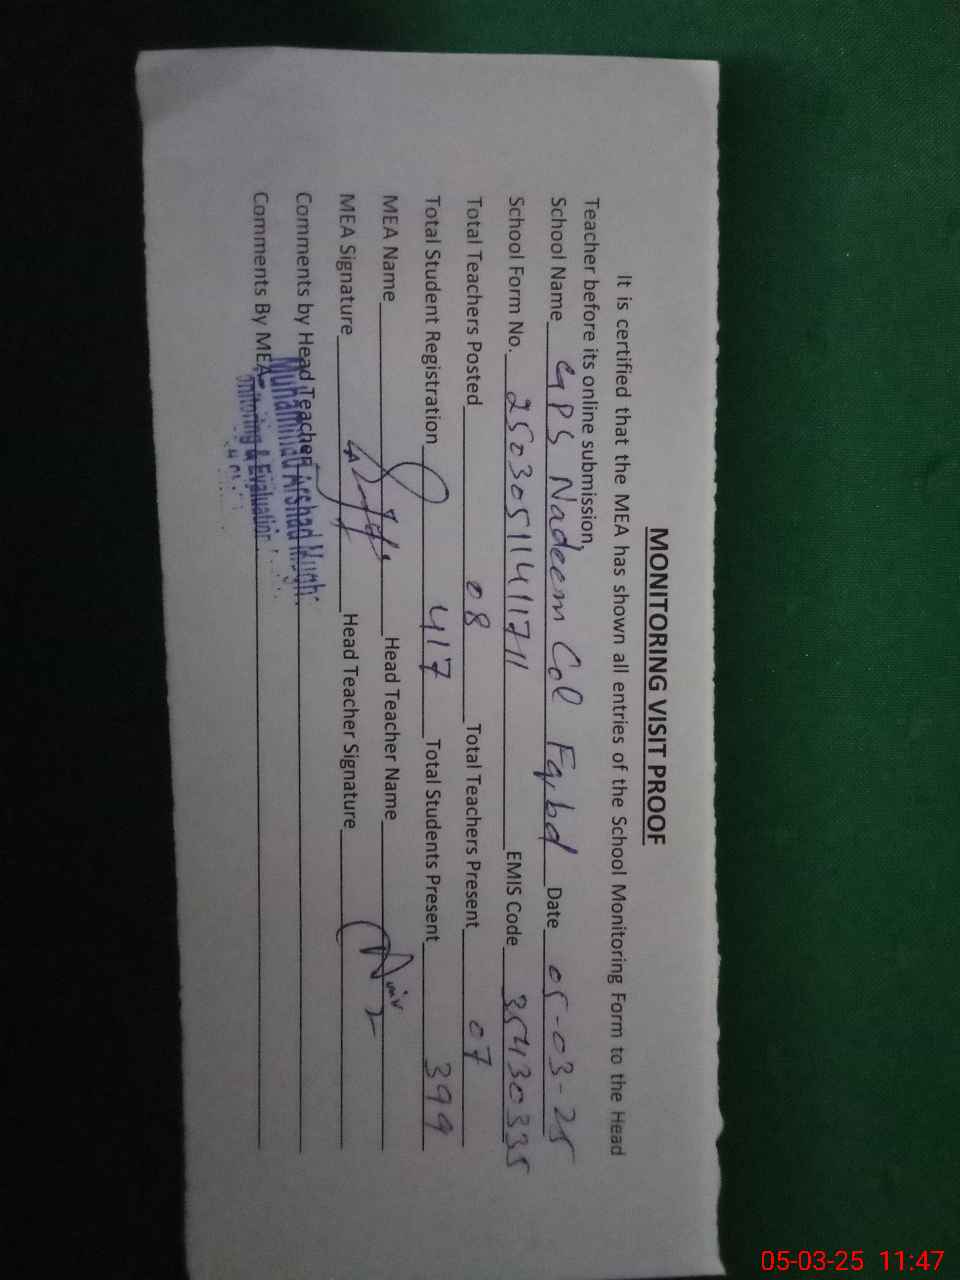 MONITORING VISIT PROOF
It is certified that the MEA has shown all entries of the School Monitoring Form to the Head
Teacher before its online submission.
School Name GPS Nadeem Col Fq,bd Date 05-03-25
School Form No. 25030511411711 EMIS Code 35430335
Total Teachers Posted 08 Total Teachers Present 07
Total Student Registration 417 Total Students Present 399
MEA Name Head Teacher Name
MEA Signature Head Teacher Signature
Comments by Head Teacher
Comments By MEA
Muhammad Arshad Mugh
onitoring & Evaluation
05-03-25 11:47